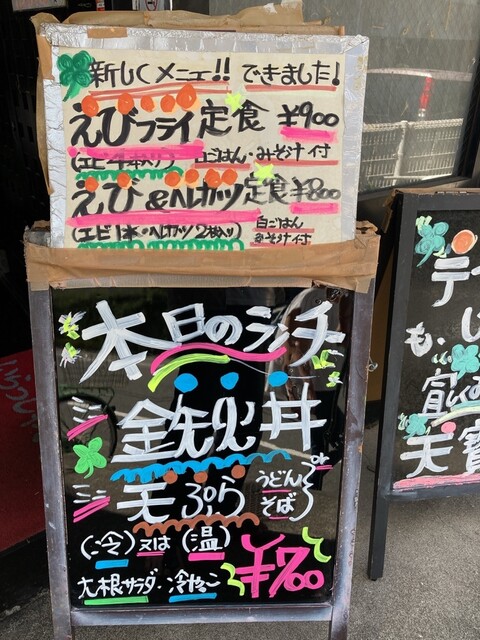 新しくメニュー!! できました!
えびフライ定食 ¥900
(エビ4本入り) 白ごはん・みそ汁付
えび&ヘレカツ定食 ¥800
(エビ1本・ヘレカツ2枚入り) 白ごはん みそ汁付
本日のランチ
ミニ 鉄火丼
ミニ 天ぷら うどん or そば
(冷) 又は (温) ¥700
大根サラダ・冷やっこ
テ
も、
宜
天寶